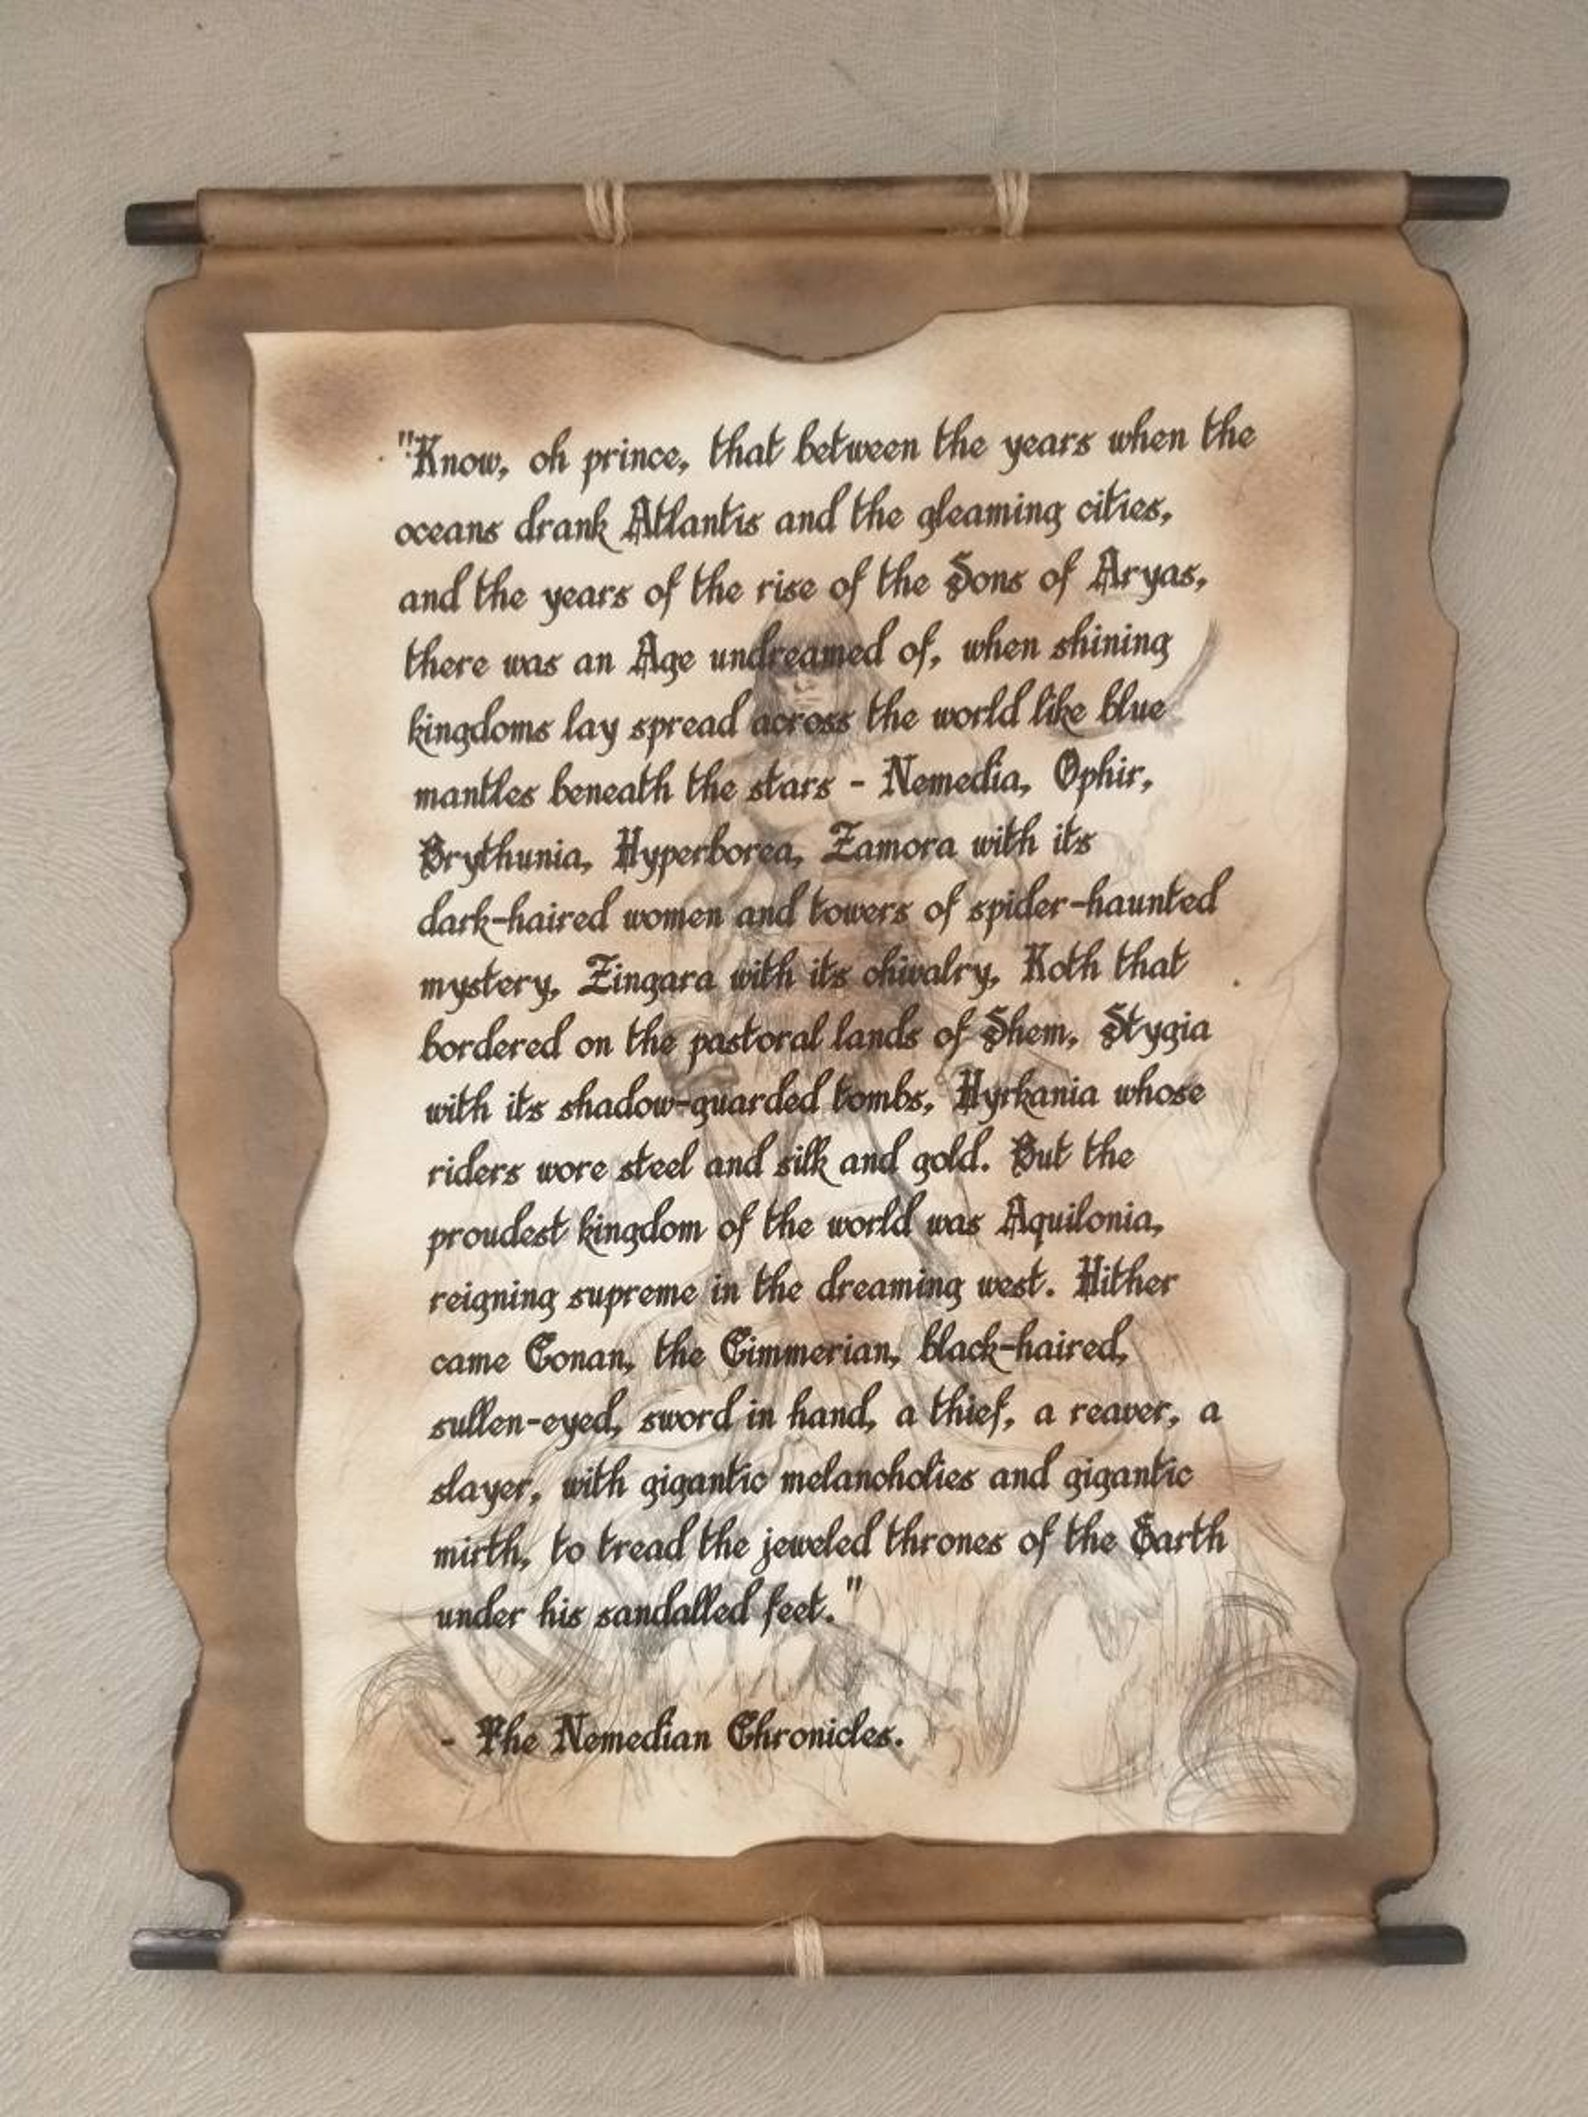 "Know, oh prince, that between the years when the
oceans drank Atlantis and the gleaming cities,
and the years of the rise of the Sons of Aryas,
there was an Age undreamed of, when shining
kingdoms lay spread across the world like blue
mantles beneath the stars - Nemedia, Ophir,
Brythunia, Hyperborea, Zamora with its
dark-haired women and towers of spider-haunted
mystery, Zingara with its chivalry, Koth that
bordered on the pastoral lands of Shem, Stygia
with its shadow-guarded tombs, Hyrkania whose
riders wore steel and silk and gold. But the
proudest kingdom of the world was Aquilonia,
reigning supreme in the dreaming west. Hither
came Conan, the Cimmerian, black-haired,
sullen-eyed, sword in hand, a thief, a reaver, a
slayer, with gigantic melancholies and gigantic
mirth, to tread the jeweled thrones of the Earth
under his sandalled feet."
- The Nemedian Chronicles.